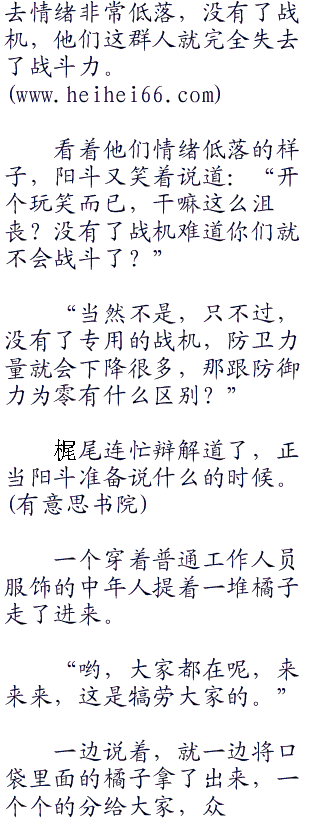 去情绪非常低落，没有了战
机，他们这群人就完全失去
了战斗力。
(www.heihei66.com)
看着他们情绪低落的样
子，阳斗又笑着说道：“开
个玩笑而已，干嘛这么沮
丧？没有了战机难道你们就
不会战斗了？”
“当然不是，只不过，
没有了专用的战机，防卫力
量就会下降很多，那跟防御
力为零有什么区别？”
梶尾连忙辩解道了，正
当阳斗准备说什么的时候。
(有意思书院)
一个穿着普通工作人员
服饰的中年人提着一堆橘子
走了进来。
“哟，大家都在呢，来
来来，这是犒劳大家的。”
一边说着，就一边将口
袋里面的橘子拿了出来，一
个个的分给大家，众